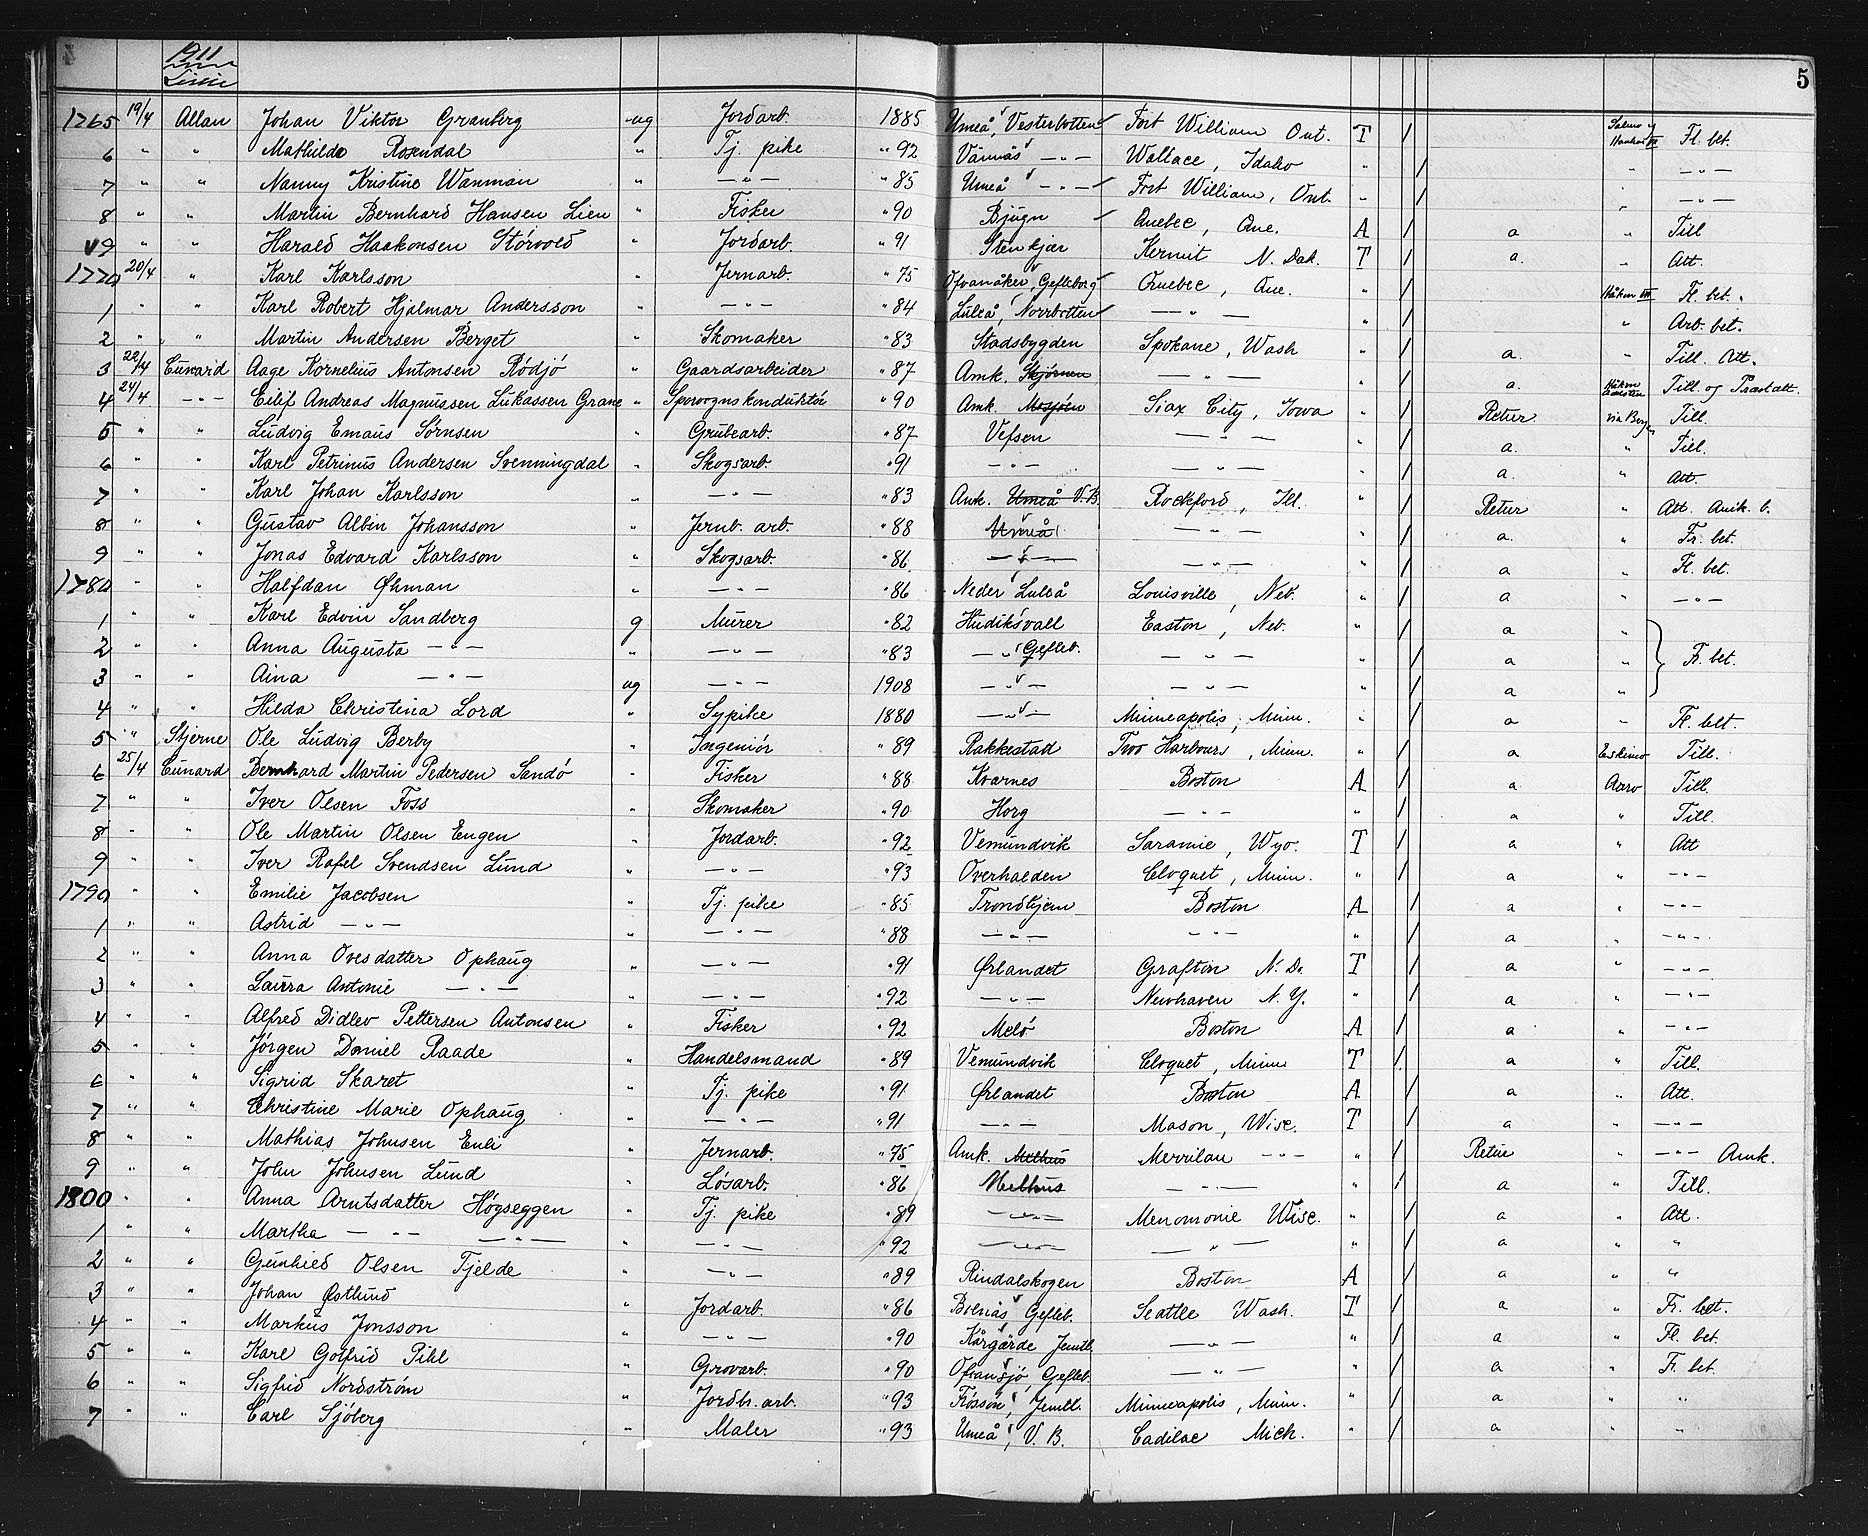 5
1911
Linie
1265 19/4 Allan Johan Viktor Granberg ug Jordarb. 1885 Umeå, Vesterbotten Fort William Ont. T / Fl. bet.
6 " " Mathilde Rosendal " Tj. pike " 92 Vännäs —"— Wallace, Idaho " / " —"—
7 " " Nanny Kristine Wanman " —"— " 85 Umeå —"— Fort William, Ont. " / " —"—
8 " " Martin Bernhard Hansen Lien " Fisker " 90 Bjugn Quebec, Que. A / a " Till
9 " " Harald Haakonsen Störvold " Jordarb. " 91 Stenkjær Kermit N. Dak. T / a. " Att.
1770 20/4 " Karl Karlsson " Jernarb. " 75 Ofvanåker, Gefleborg Quebec, Que. " / Håkon VII Fl. bet.
1 " " Karl Robert Hjalmar Andersson " —"— " 84 Luleå, Norrbotten —"— " / " Arb. bet.
2 " " Martin Andersen Berget " Skomaker " 83 Stadsbygden Spokane, Wash " / a. " Till. Att.
3 22/4 Cunard Aage Kornelius Antonsen Rödjö " Gaardsarbeider " 87 Amk. Skjørnen —"— " / a. Till. og Præstatt.
4 24/4 —"— Eilif Andreas Magnussen Lukassen Grane " Sporvognskonduktör " 90 Amk. Mosjøen Siax City, Iowa " / Retur. via Bergen Till.
5 " " Ludvig Emaus Sørnsen " Grubearb. " 87 Vefsen —"— " / a. " Till.
6 " " Karl Petrinus Andersen Svenningdal " Skogsarb. " 91 —"— —"— " / a. " Att.
7 " " Karl Johan Karlsson " —"— " 83 Amk. Umeå V.B. Rockford, Ill. " / Retur " Att. Amk. b.
8 " " Gustav Albin Johansson " Jernb. arb. " 88 Umeå —"— " / a. " Fr. bet.
9 " " Jonas Edvard Karlsson " Skogsarb. " 86 —"— —"— " / a " Fl. bet.
1780 " " Halfdan Øhman " —"— " 86 Neder Luleå Louisville, Neb. " / a " —"—
1 " " Karl Edvin Sandberg g Murer " 82 Hudiksvall Easton, Neb. " / a "
2 " " Anna Augusta —"— " —"— " 83 —"— Gefleb. —"— " / a " Fr. bet.
3 " " Aina —"— ug —"— 1908 —"— —"— " / a "
4 " " Hilda Christina Lord " Sypike 1880 —"— Minneapolis, Minn. " / a " Fl. bet.
5 " " Stjerne Ole Ludvig Berby " Ingeniör " 89 Rakkestad Two Harbours, Minn. " / a Eskimo Till.
6 25/4 Cunard Bernhard Martin Pedersen Sandö " Fisker " 88 Kværnes Boston A / a Aaro Till.
7 " " Iver Olsen Foss " Skomaker " 90 Horg —"— " / a " Till.
8 " " Ole Martin Olsen Engen " Jordarb. " 92 Vemundvik Laramie, Wyo. T / a " Att
9 " " Iver Rafel Svendsen Lund " —"— " 93 Overhalden Cloquet, Minn. " / a " —"—
1790 " " Emilie Jacobsen " Tj. pike " 85 Trondhjem Boston A / a " —"—
1 " " Astrid —"— " —"— " 88 —"— —"— " / a " —"—
2 " " Anna Ovesdatter Ophaug " —"— " 91 Ørlandet Grafton N. Da. T / a " —"—
3 " " Laura Antonie —"— " —"— " 92 —"— Newhaven N. Y. " / a " —"—
4 " " Alfred Didlev Pettersen Antonsen " Fisker " 92 Melö Boston A / a " —"—
5 " " Jörgen Daniel Raade " Handelsmand " 89 Vemundvik Cloquet, Minn T / a " Till.
6 " " Sigrid Skaret " Tj. pike " 91 Ørlandet Boston A / a " Att.
7 " " Christine Marie Ophaug " —"— " 91 —"— Mason, Wisc. T / a " —"—
8 " " Mathias Johnsen Enli " Jernarb. " 75 Amk. Melhus Merrilan —"— " / Retur " —"— Amk.
9 " " John Johnsen Lund " Løsarb. " 86 Melhus —"— " / a " Till.
1800 " " Anna Arntsdatter Högseggen " Tj. pike " 89 —"— Menomonie Wisc. " / a " Att.
1 " " Martha —"— —"— " —"— " 92 —"— —"— " / a " "
2 " " Gunhild Olsen Fjelde " —"— " 89 Rindalskogen Boston A / a " "
3 " " Johan Østlund " Jordarb. " 86 Bolnäs, Gefleb. Seattle Wash. T / a " Fr. bet.
4 " " Markus Jonsson " —"— " 90 Kårgärde Jemtl. —"— " / a " Fl. bet.
5 " " Karl Gotfrid Pihl " Grovarb. " 90 Ofvansjö, Gefleb. —"— " / a " Fr. bet.
6 " " Sigfrid Nordström " Jordbr. arb. " 93 Frösön, Jemtl. Minneapolis, Minn. " / a " "
7 " " Carl Sjöberg " Maler " 93 Umeå, V. B. Cadilac Mich. " / a " "